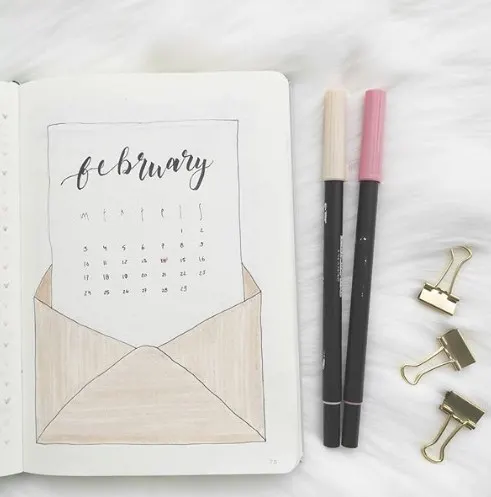 february
m t t f l s
1 2
3 4 5 6 7 8 9
10 11 12 13 14 15 16
17 18 19 20 21 22 23
24 25 26 27 28 29